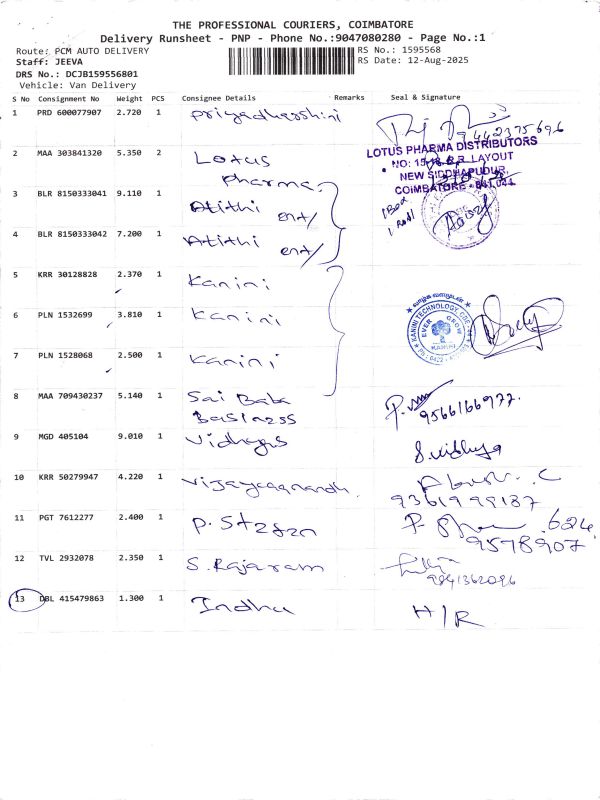 THE PROFESSIONAL COURIERS, COIMBATORE
Delivery Runsheet - PNP - Phone No.:9047080280 - Page No.:1
Route: PCM AUTO DELIVERY
RS No.: 1595568
Staff: JEEVA
RS Date: 12-Aug-2025
DRS No.: DCJB159556801
Vehicle: Van Delivery
S No Consignment No Weight PCS Consignee Details Remarks Seal & Signature
1 PRD 600077907 2.720 1 Priyadharshini
9442375696
2 MAA 303841320 5.350 2 Lotus
Pharma
LOTUS PHARMA DISTRIBUTORS
LAYOUT
NEW SIDDHAPUDUR,
COIMBATORE - 641 044
3 BLR 8150333041 9.110 1 Atithi ent/
1 Box
4 BLR 8150333042 7.200 1 Atithi ent/
5 KRR 30128828 2.370 1 Kanini
6 PLN 1532699 3.810 1 Kanini
KANINI TECHNOLOGY, CBE
EVER GROW
KANINI
7 PLN 1528068 2.500 1 Kanini
8 MAA 709430237 5.140 1 Sai Baba
9566166977.
9 MGD 405104 9.010 1
S.vidhya
10 KRR 50279947 4.220 1
9361999187
11 PGT 7612277 2.400 1
12 TVL 2932078 2.350 1 S. Rajaram
13 DBL 415479863 1.300 1 Indhu
H/R